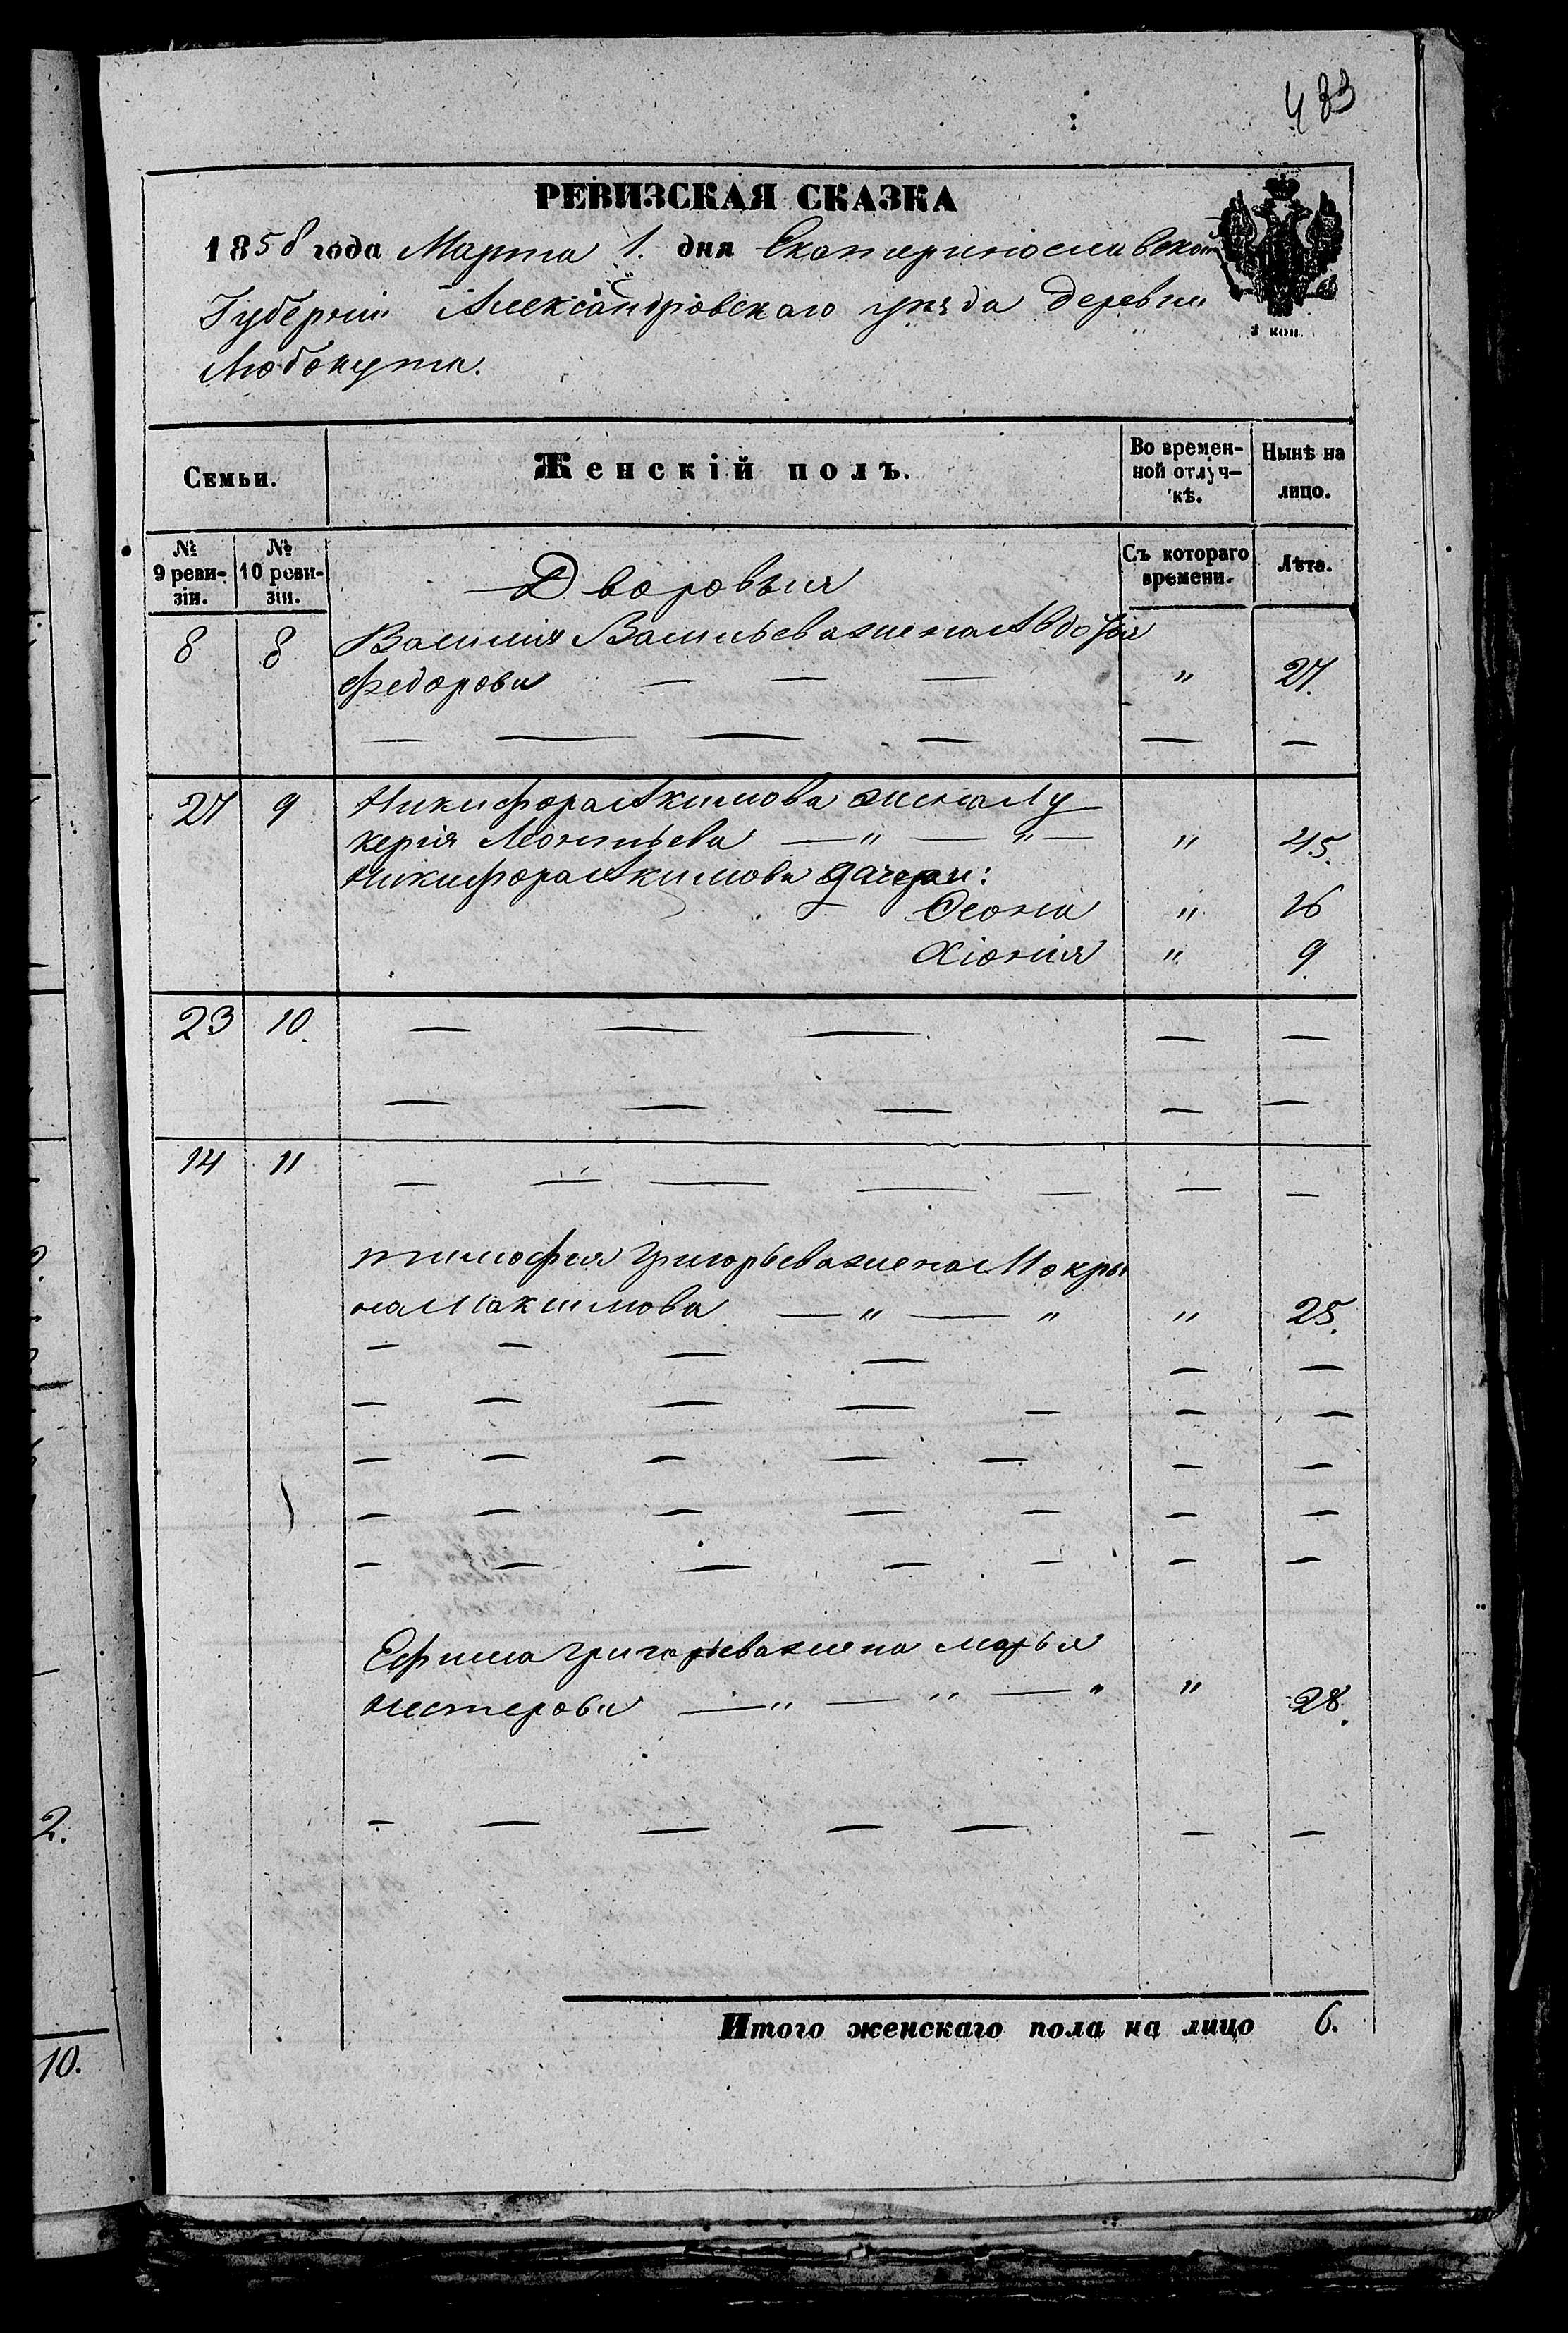 433
РЕВИЗСКАЯ СКАЗКА
1858 года Марта 1. дня Екатеринославской
Губерніи Александровскаго уѣзда деревни
Любокута.
2 коп.
Семьи.
Женскій полъ.
Во времен-
ной отлуч-
кѣ.
Нынѣ на
лицо.
№
9 реви-
зіи.
№
10 реви-
зіи.
Съ котораго
времени.
Лѣта.
Дворовыя
8 8 Василія Васильева жена Авдотья
Федорова " 27.
27 9 Никифора Акимова жена Лу
керія Леонтьева " " " 45.
Никифора Акимова дочери:
Ѳеонія " 16
Хіонія " 9.
23 10.
14 11
Тимофея Григорьева жена Мокры
на Максимова " " " 25.
Ефима Григорьева жена Марья
Нестерова " " " " 28.
Итого женскаго пола на лицо 6.
2.
10.